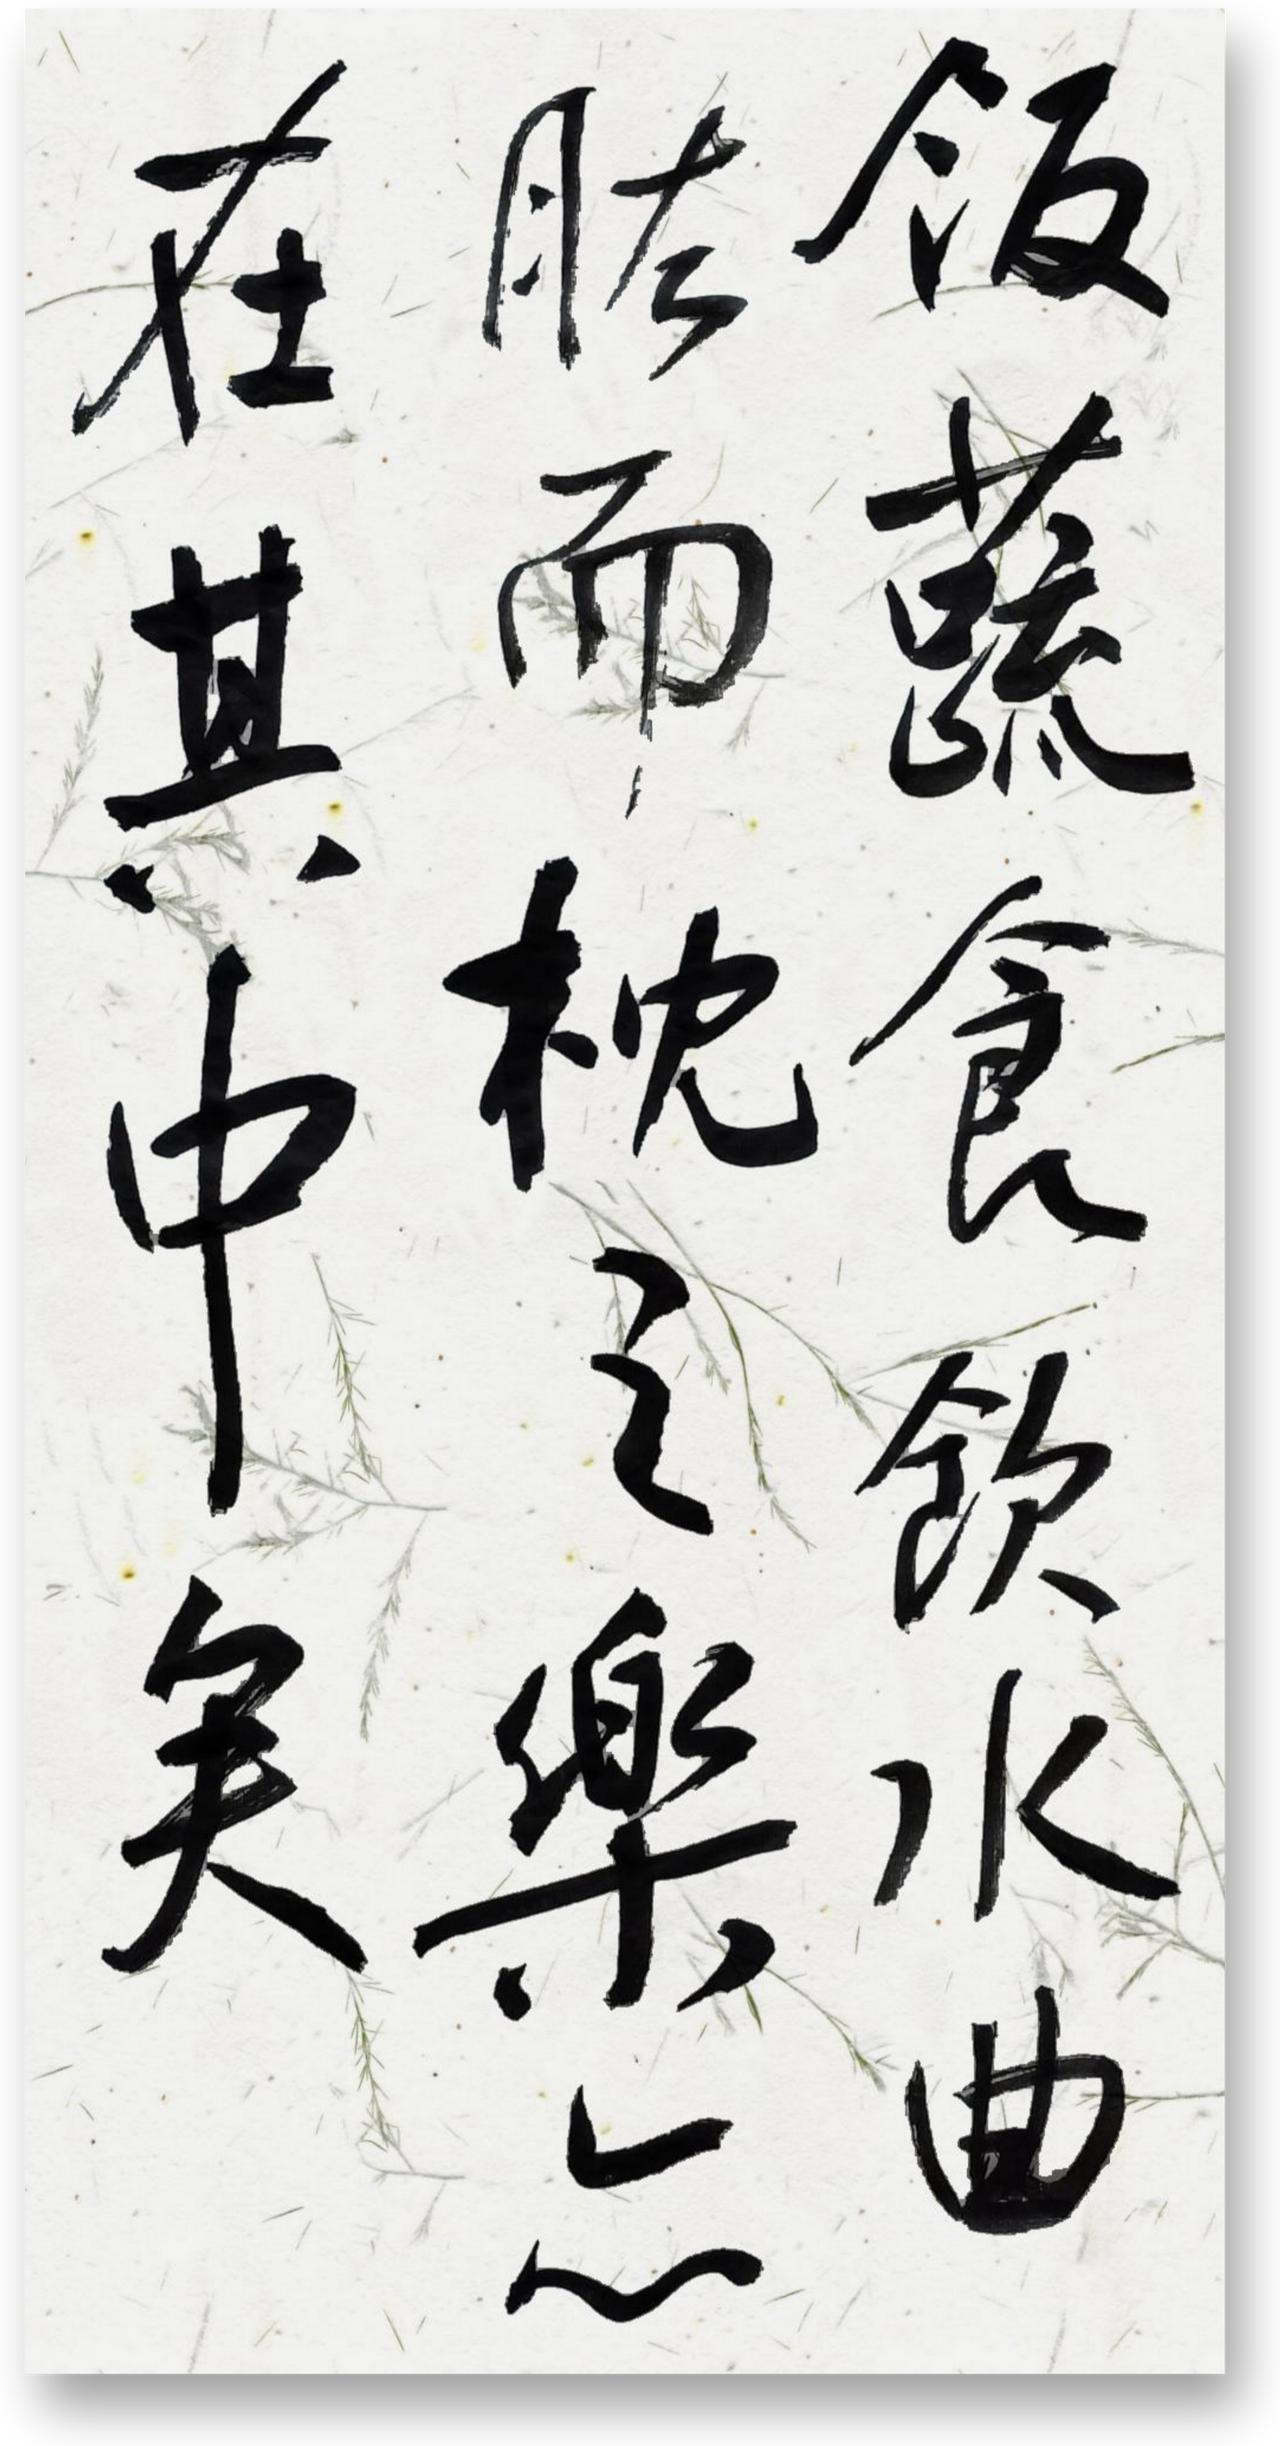 飯蔬食飲水曲
肱而枕之樂亦
在其中矣